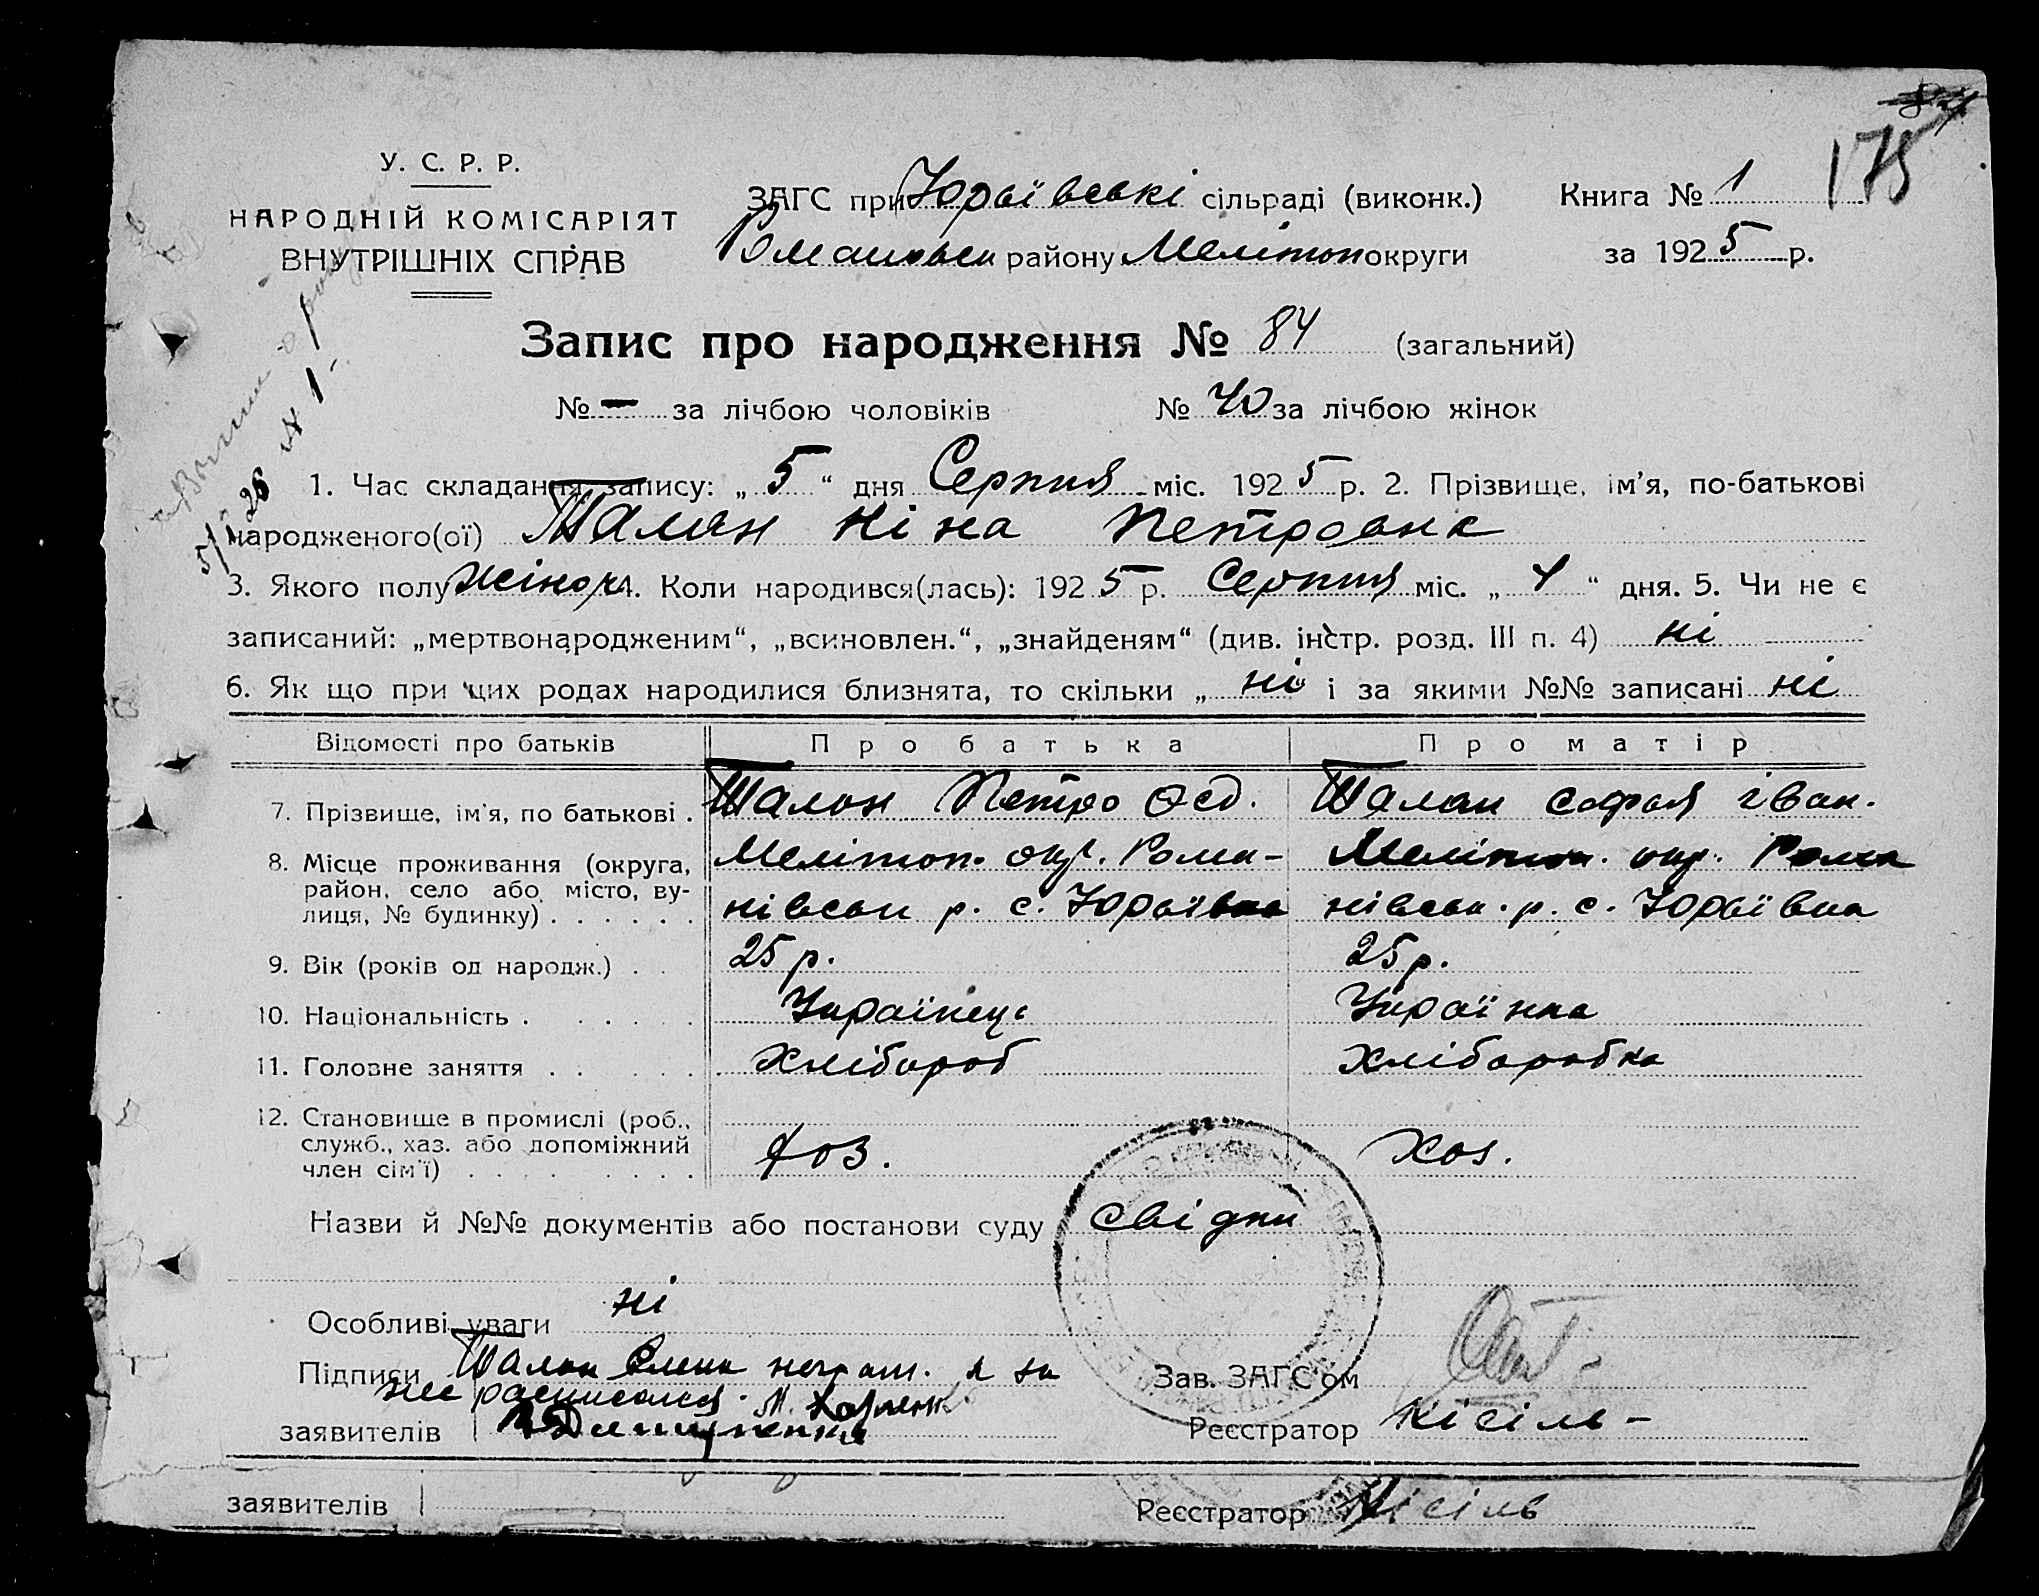 175
У. С. Р. Р.
НАРОДНІЙ КОМІСАРІЯТ
ВНУТРІШНІХ СПРАВ
ЗАГС при Юрьївські сільраді (виконк.)
Книга № 1
района Мелітоп округи
за 1925 р.
Запис про народження № 84 (загальний)
№ — за лічбою чоловіків
№ 40 за лічбою жінок
5/I 26 № 1
1. Час складання запису: „ 5 “ дня Серпня міс. 1925 р. 2. Прізвище, ім'я, по-батькові
народженого(ої) Шалан Ніна Петровна
3. Якого полу жіноч 4. Коли народився(лась): 1925 р. Серпня міс. „ 4 “ дня. 5. Чи не є
записаний: „мертвонародженим“, „всиновлен.“, „знайденям“ (див. інстр. розд. III п. 4) ні
6. Як що при цих родах народилися близнята, то скільки „ ні і за якими №№ записані ні
Відомості про батьків
Про батька
Про матір
7. Прізвище, ім'я, по батькові .
Шалан Петро Осд.
Шалан Софья Іван.
8. Місце проживання (округа,
район, село або місто, ву-
лиця, № будинку) . . . . . .
Мелітоп. окр. Рома-
нівськ р. с. Юрьївка
Мелітоп. окр. Рома
нівськ. р. с. Юрьївка
9. Вік (років од народж.) . .
25 р.
25 р.
10. Національність . . . . . .
Українець
Українка
11. Головне заняття . . . . . .
Хлібороб
Хліборобка
12. Становище в промислі (роб.,
служб., хаз. або допоміжний
член сім'ї) . . . . . . . .
Хоз.
Хоз.
Назви й №№ документів або постанови суду свідки
Особливі уваги ні
Підписи Шалан неграм. а за
неї расписался.
заявителів
Зав. ЗАГС'ом
Реєстратор Кісіль -
заявителів
Реєстратор Кісіль